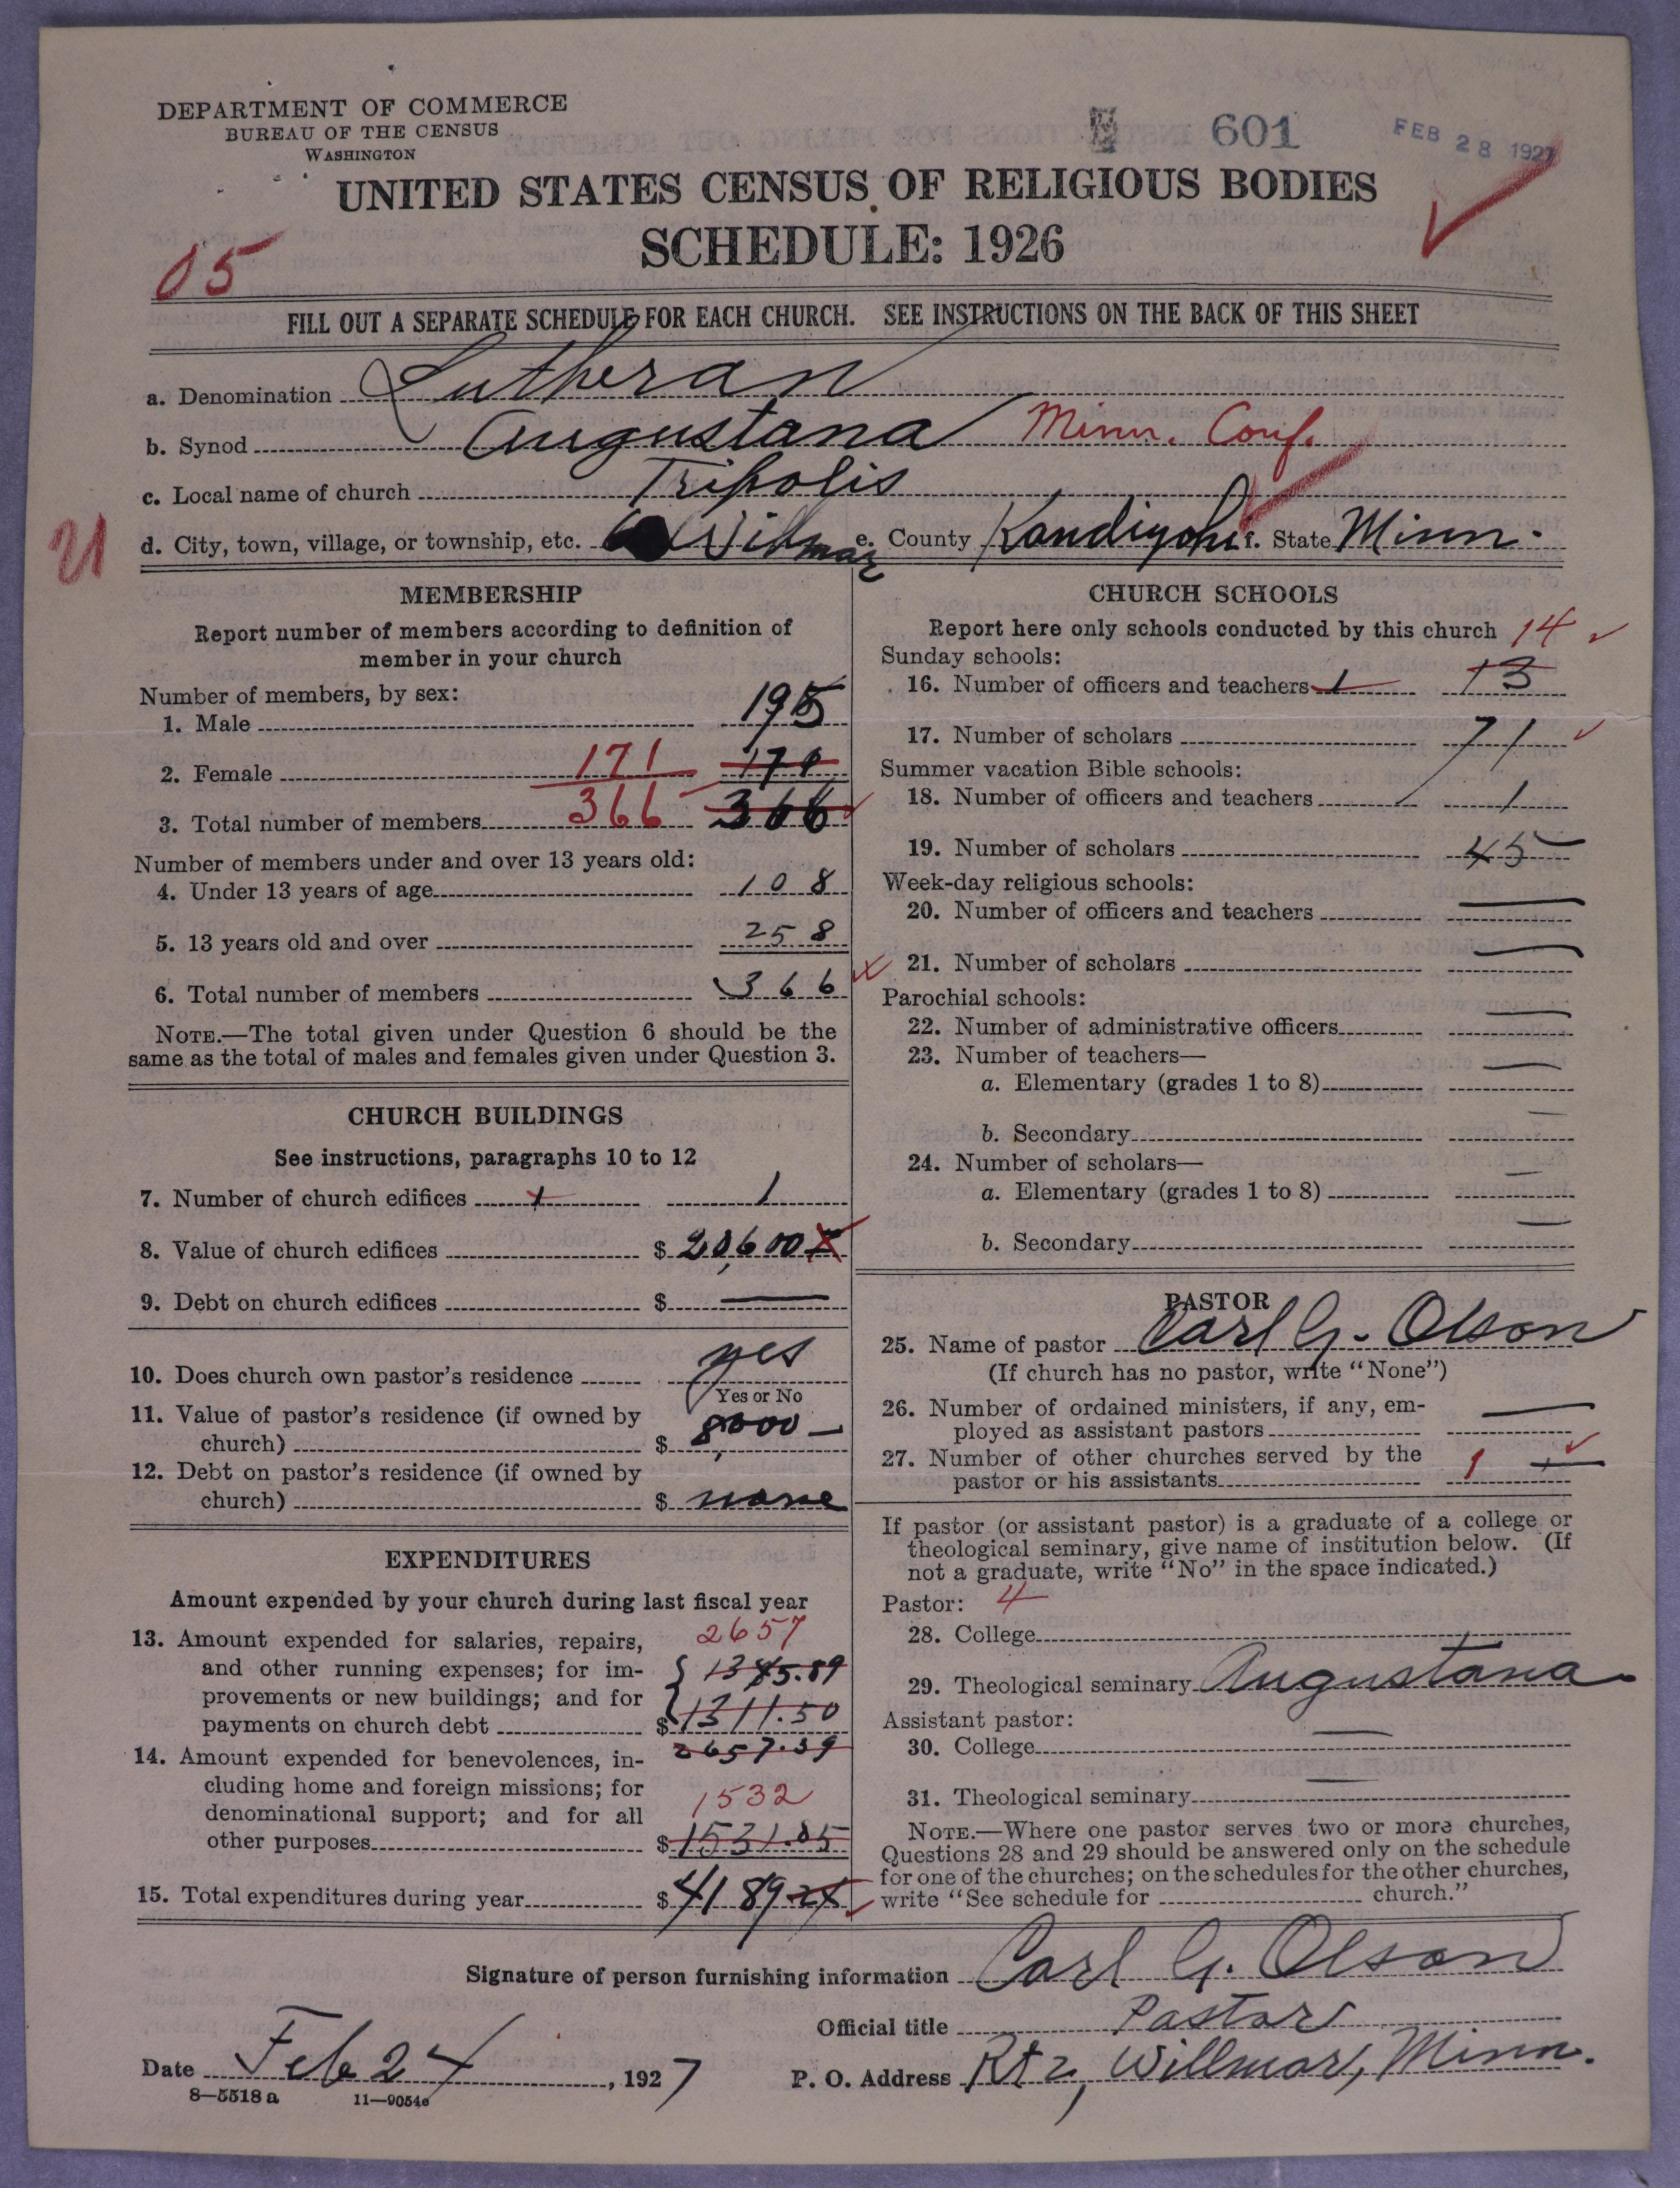 DEPARTMENT OF COMMERCE
BUREAU OF THE CENSUS
WASHINGTON
601
FEB 28 1927
UNITED STATES CENSUS OF RELIGIOUS BODIES
SCHEDULE: 1926
05
FILL OUT A SEPARATE SCHEDULE FOR EACH CHURCH. SEE INSTRUCTIONS ON THE BACK OF THIS SHEET
a. Denomination Lutheran
b. Synod Augustana Minn. Conf.
c. Local name of church Tripolis
d. City, town, village, or township, etc. Willmar e. County Kandiyohi f. State Minn.
MEMBERSHIP
Report number of members according to definition of
member in your church
Number of members, by sex:
1. Male 195
2. Female 171 171
3. Total number of members 366 366
Number of members under and over 13 years old:
4. Under 13 years of age 108
5. 13 years old and over 258
6. Total number of members 366
NOTE.—The total given under Question 6 should be the
same as the total of males and females given under Question 3.
CHURCH BUILDINGS
See instructions, paragraphs 10 to 12
7. Number of church edifices 1 1
8. Value of church edifices $ 20,600
9. Debt on church edifices $ —
10. Does church own pastor's residence yes
Yes or No
11. Value of pastor's residence (if owned by
church) $ 8,000 —
12. Debt on pastor's residence (if owned by
church) $ none
EXPENDITURES
Amount expended by your church during last fiscal year
13. Amount expended for salaries, repairs, 2657
and other running expenses; for im- 1345.89
provements or new buildings; and for
payments on church debt $ 1311.50
14. Amount expended for benevolences, in- 2657.39
cluding home and foreign missions; for
denominational support; and for all 1532
other purposes $ 1531.85
15. Total expenditures during year $ 4189.24
CHURCH SCHOOLS
Report here only schools conducted by this church 14
Sunday schools:
16. Number of officers and teachers 1 13
17. Number of scholars 71
Summer vacation Bible schools:
18. Number of officers and teachers 1
19. Number of scholars 45
Week-day religious schools:
20. Number of officers and teachers —
21. Number of scholars —
Parochial schools:
22. Number of administrative officers —
23. Number of teachers—
a. Elementary (grades 1 to 8) —
b. Secondary —
24. Number of scholars—
a. Elementary (grades 1 to 8) —
b. Secondary —
PASTOR
25. Name of pastor Carl G. Olson
(If church has no pastor, write "None")
26. Number of ordained ministers, if any, em-
ployed as assistant pastors —
27. Number of other churches served by the
pastor or his assistants 1
If pastor (or assistant pastor) is a graduate of a college or
theological seminary, give name of institution below. (If
not a graduate, write "No" in the space indicated.)
Pastor: 4
28. College
29. Theological seminary Augustana
Assistant pastor:
30. College —
31. Theological seminary —
NOTE.—Where one pastor serves two or more churches,
Questions 28 and 29 should be answered only on the schedule
for one of the churches; on the schedules for the other churches,
write "See schedule for church."
Signature of person furnishing information Carl G. Olson
Official title Pastor
Date Feb 24, 1927 P. O. Address Rt 2, Willmar, Minn.
8—5518 a 11—9054c